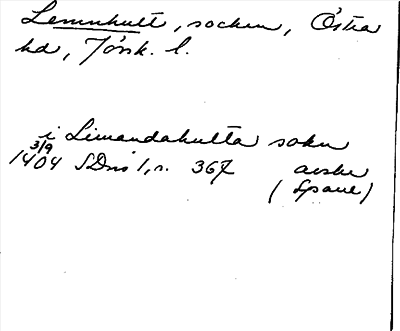 Lemnhult, socken, Östra
hd, Jönk. l.
i Limandahulta sokn
3/9
1404 SDns 1, s. 367 avskr
(Spane)